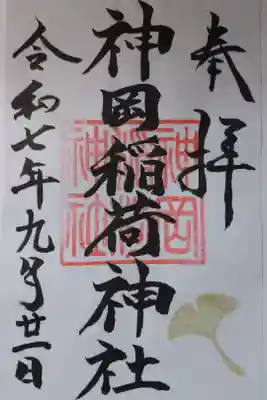 奉拝
神岡稲荷神社
令和七年九月廿一日
神岡稲荷神社